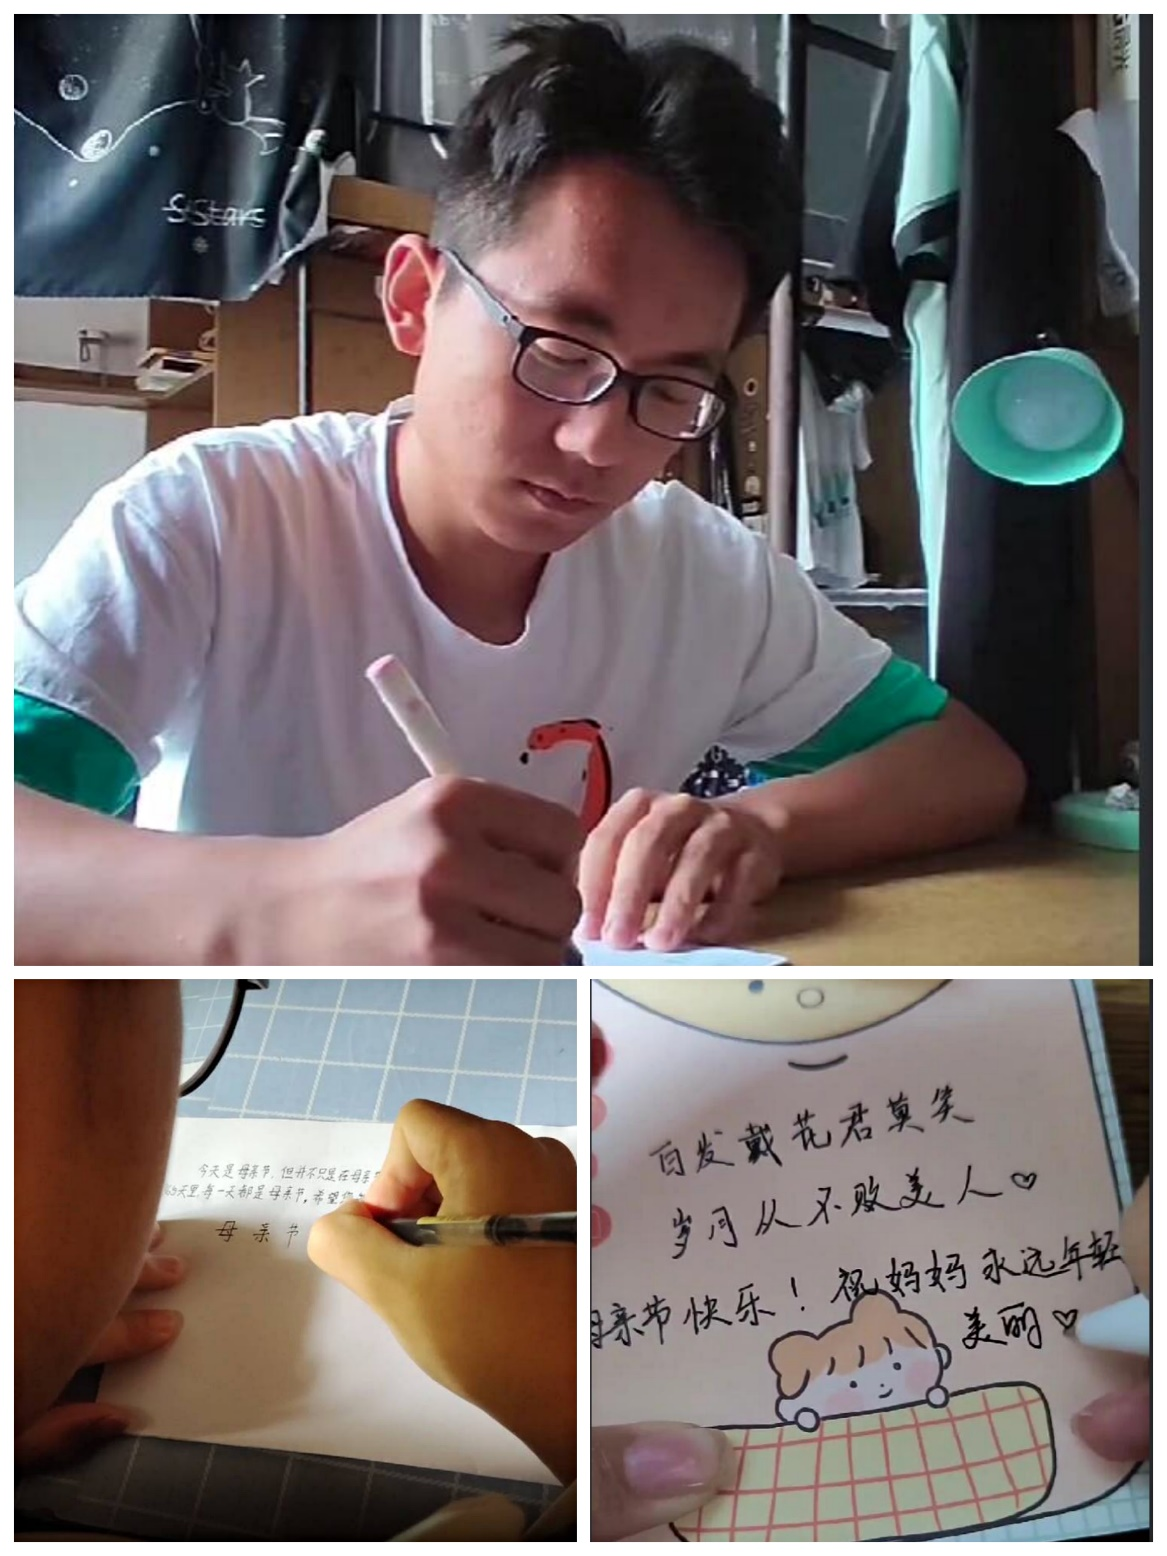 S Stars
今天是母亲节,但并不只是在母亲节
65天里,每一天都是母亲节。希望您
母亲节
百发戴花君莫笑
岁月从不败美人♡
母亲节快乐!祝妈妈永远年轻
美丽♡